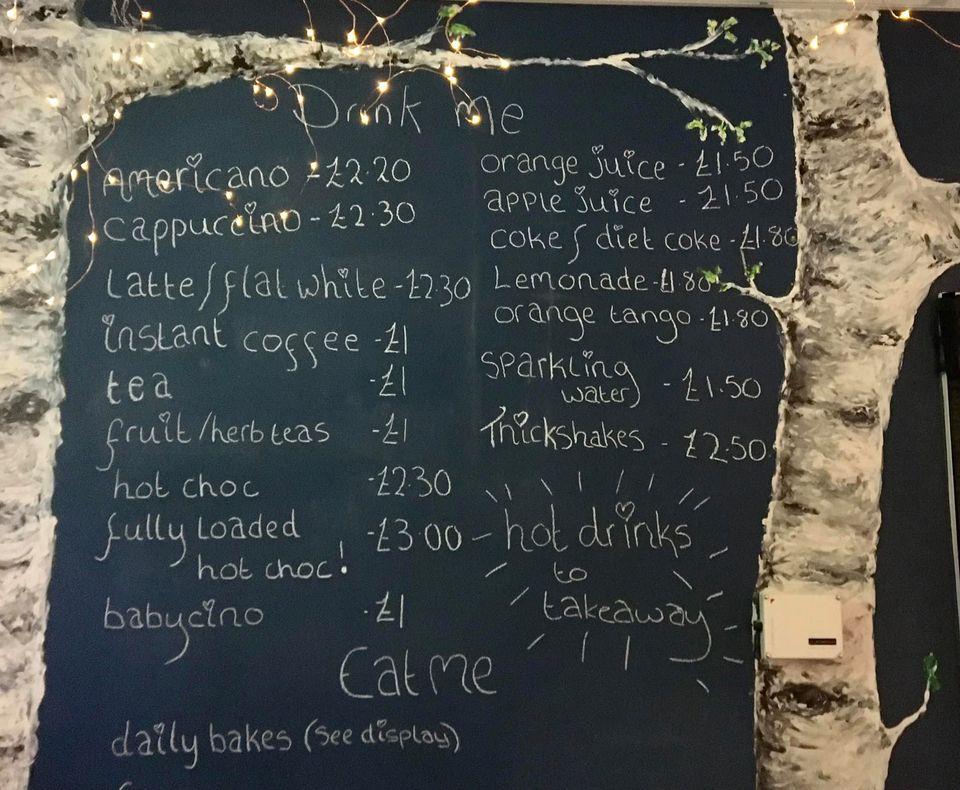 Drink Me
Americano - £2.20
cappuccino - £2.30
Latte/flat white - £2.30
instant coffee - £1
tea - £1
fruit/herb teas - £1
hot choc - £2.30
fully Loaded - £3.00
hot choc!
babycino - £1
orange juice - £1.50
apple juice - £1.50
coke/diet coke - £1.80
Lemonade - £1.80
orange tango - £1.80
sparkling
water - £1.50
Thickshakes - £2.50
hot drinks
to
takeaway
Eat Me
daily bakes (see display)